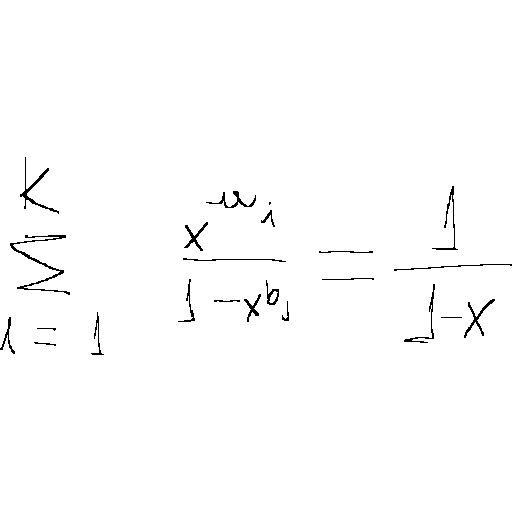 \sum_{i=1}^{K} \frac{x^{u_i}}{1-x^{b_i}} = \frac{1}{1-x}